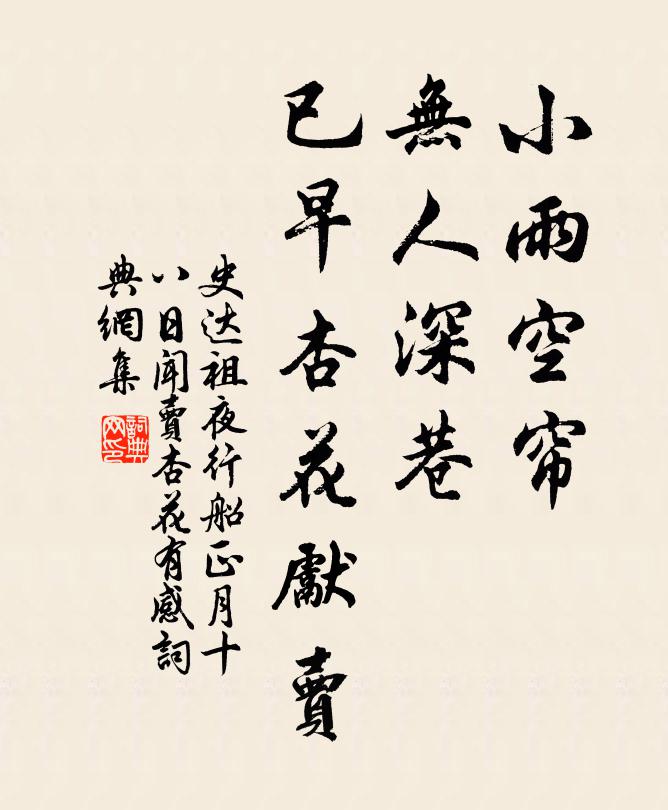 小雨空帘
無人深巷
已早杏花獻賣
史达祖夜行船正月十
八日聞賣杏花有感詞
典網集
詞典
网印